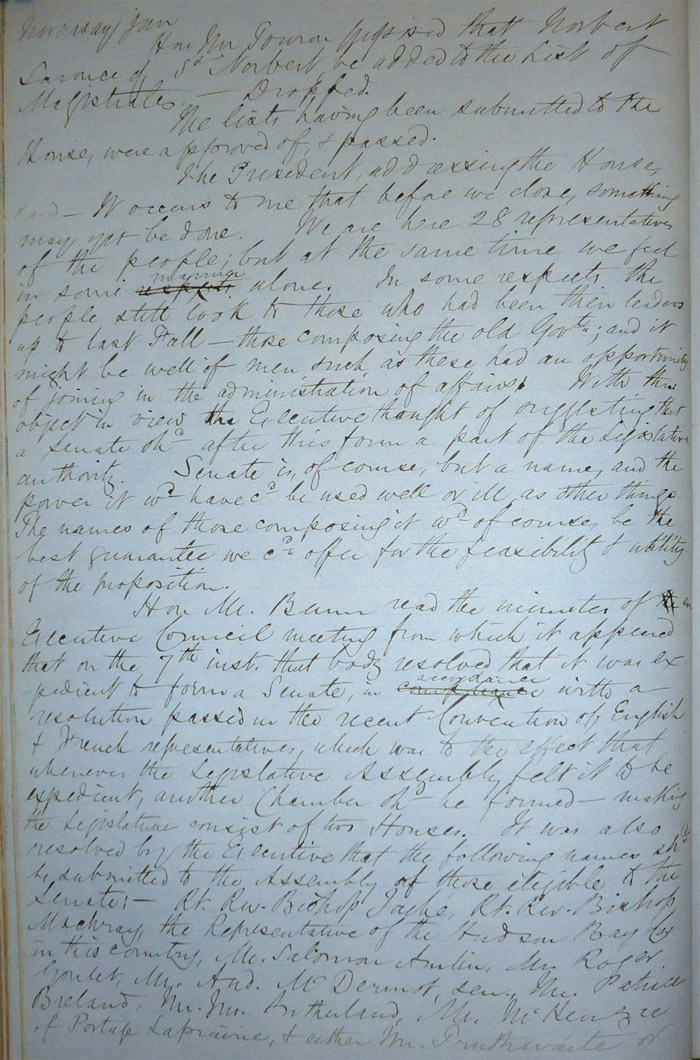 Hon Mr Touron proposed that Norbert
Laronce of St Norbert be added to the List of
Magistrates — Dropped.
The lists having been submitted to the
House, were approved of, & passed.
The President, addressing the House,
said — It occurs to me that before we close, something
may yet be done. We are here 28 representatives
of the people; but at the same time we feel
in some manner alone. In some respects the
people still look to those who had been their leaders
up to last Fall — those composing the old Govtn; and it
might be well if men such as these had an opportunity
of joining in the administration of affairs. With this
object in view the Executive thought of suggesting that
a Senate shd after this form a part of the Legislative
authority. Senate is, of course, but a name, and the
power it wd have cd be used well or ill, as other things.
The names of those composing it wd of course, be the
best guarantee we cd offer for the feasibility & utility
of the proposition.
Hon Mr. Bunn read the minutes of an
Executive Council meeting from which it appeared
that on the 7th inst. that body resolved that it was ex-
-pedient to form a Senate, in accordance with a
resolution passed in the recent Convention of English
& French representatives, which was to the effect that
whenever the Legislative Assembly felt it to be
expedient, another Chamber shd be formed — making
the Legislature consist of two Houses. It was also
resolved by the Executive that the following names shd
be submitted to the Assembly of those eligible to the
Senate: — Rt. Rev. Bishop Tache, Rt. Rev. Bishop
Machray, the Representative of the Hudson Bay Co
in this country, Mr. Salomon Amlin, Mr. Roger
Goulet, Mr. And. McDermot, sen., Mr. Patrice
Breland, Mr. Jno. Sutherland, Mr. McKenzie
of Portage Laprairie, & either Mr. Truthwaite or